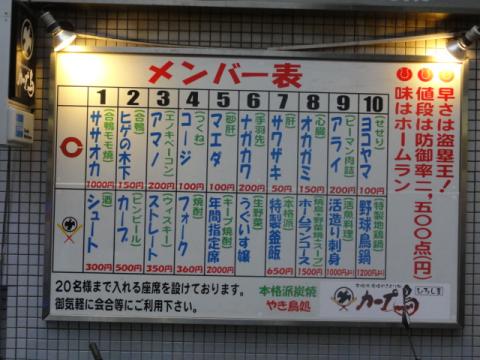 メンバー表
1 2 3 4 5 6 7 8 9 10
(合鴨モモ焼) ササオカ 1000円
(合鴨) ヒゲの木下 150円
(エノキベーコン) アマノ 200円
(つくね) コージ 100円
(砂肝) マエダ 100円
(手羽先) ナガカワ 200円
(肝) サワザキ 50円
(心臓) オカガミ 150円
(ピーマン肉詰) アライ 200円
(せせり) ヨコヤマ 100円
(酒) シュート 300円
(ビンビール) カーブ 500円
ストレート 350円
(ウィスキー) フォーク 360円
(焼酎)
(キープ焼酎) 年間指定席 2000円
(生野菜) うぐいす嬢
(本格派) 特製釜飯 650円
(焼鳥・野菜焼・スープ) ホームランコース 1500円
(活魚料理) 活造り刺身 1000円より
(特製地鶏鍋) 野球鳥鍋 1200円
早さは盗塁王!
値段は防御率二、五〇〇点(円)
味はホームラン
20名様まで入れる座席を設けております。
御気軽に会合等にご利用下さい。
本格派炭焼
やき鳥処
カープ鳥
ひろしま